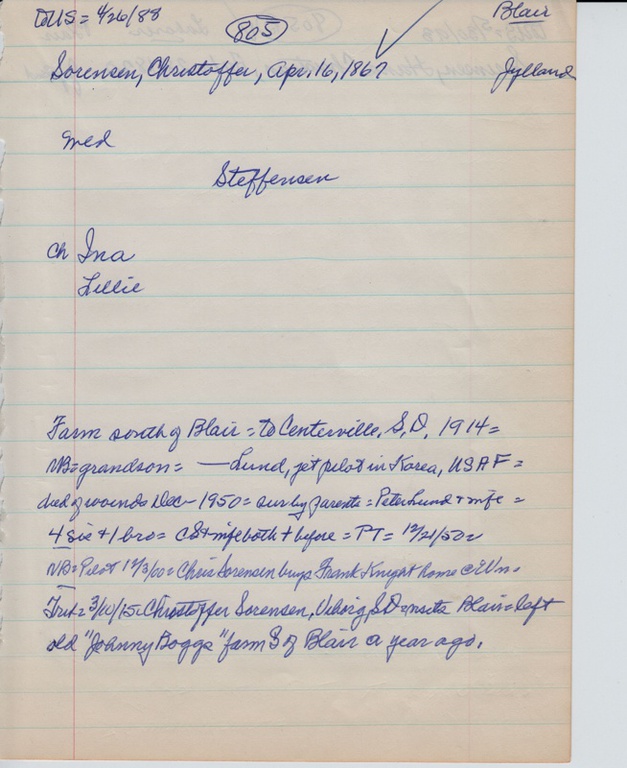 to US = 4/26/88
805
Blair
Sorensen, Christoffer, Apr. 16, 1867
Jylland
med
Steffensen
ch Ina
Lillie
Farm south of Blair = to Centerville, S.D. 1914 =
NB = grandson = — Lund, jet pilot in Korea, USAF =
died of wounds Dec - 1950 = sur by parents = Peter Lund + wife =
4 sis + 1 bro = CS + wife both + before = PT = 12/21/50 =
NB = Pilot 12/3/00 = Chris Sorensen buys Frank Knight home
Trib = 3/10/15 = Christoffer Sorensen, Viborg, SD = visits Blair = left
old "Johnny Boggs" farm S of Blair a year ago.